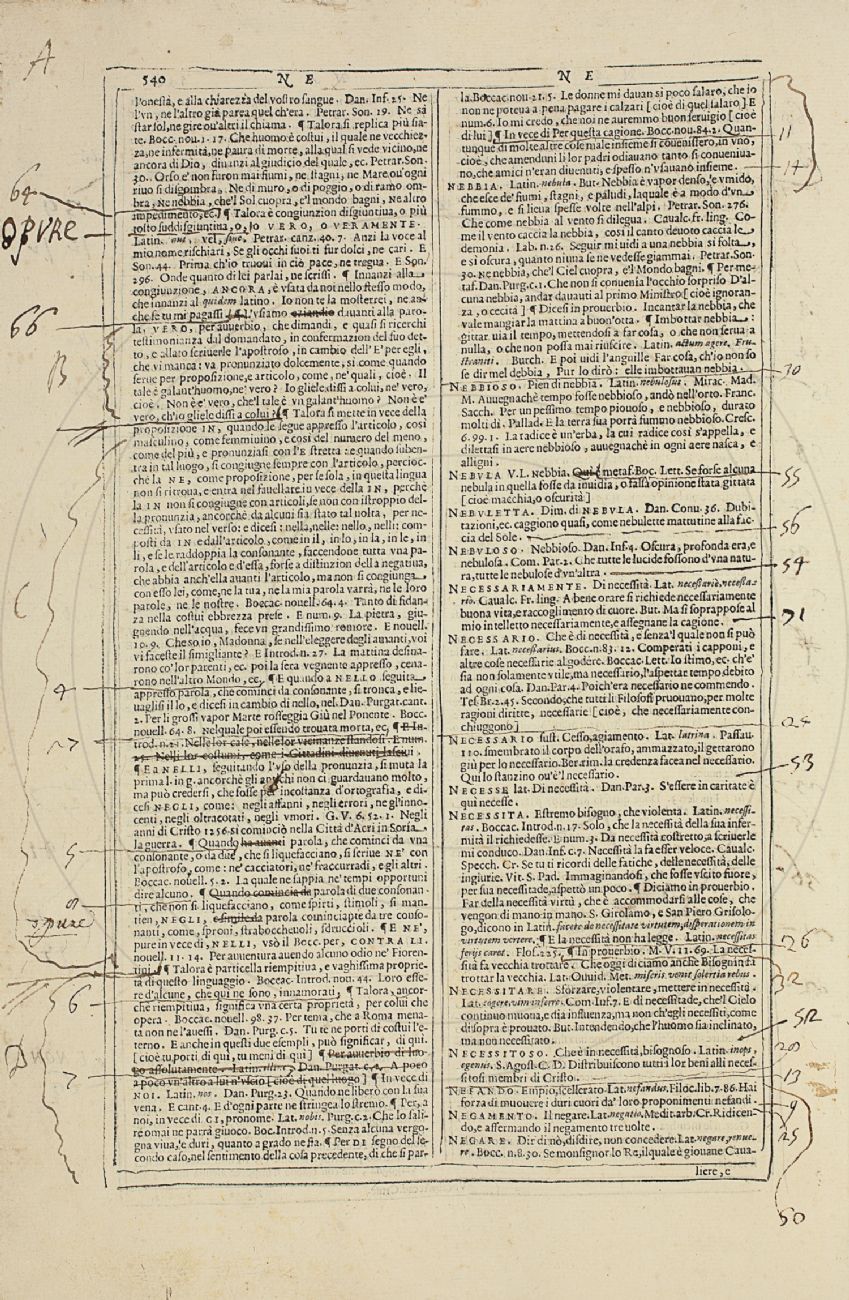 A
540 NE
NE
l'onestà, e alla chiarezza del vostro sangue. Dan. Inf. 25. Ne
l'vn, ne l'altro già parea quel ch'era. Petrar. Son. 19. Ne sà
star sol, ne gire ou'altri il chiama. ¶ Talora si replica più fia-
te. Bocc. nou. 1. 17. Che huomo è costui, il quale ne vecchiez-
za, ne infermità, ne paura di morte, alla qual si vede vicino, ne
ancora di Dio, dinanzi al giudicio del quale, ec. Petrar. Son.
30. Orso e' non furon mai fiumi, ne stagni, ne Mare, ou'ogni
riuo si disgombra, Ne di muro, o di poggio, o di ramo om-
bra, Ne nebbia, che'l Sol cuopra, e'l mondo bagni, Ne altro
impedimento, ec. ¶ Talora è congiunzion disgiuntiua, o più
tosto suddisgiuntiua, o, lo VERO, O VERAMENTE.
Latin. aut, vel, siue. Petrar. canz. 40. 7. Anzi la voce al
mio nome rischiari, Se gli occhi suoi ti fur dolci, ne cari. E
Son. 44. Prima ch'io truoui in ciò pace, ne tregua. E Son.
296. Onde quanto di lei parlai, ne scrissi. ¶ Innanzi alla
congiunzione, ANCORA, è vsata da noi nello stesso modo,
che innanzi al quidem latino. Io non te la mosterrei, ne an-
che se tu mi pagassi. ¶ L'vsiamo eziandio dauanti alla paro-
la, VERO, per auuerbio, che dimandi, e quasi si ricerchi
testimonianza dal domandato, in confermazion del suo det-
to, e allato scriuerle l'apostrofo, in cambio dell'E' per egli,
che vi manca: va pronunziato dolcemente, sì come quando
serue per proposizione, e articolo, come, ne' quali, cioè. Il
tale è galant'huomo, ne' vero? Io gliele dissi a colui, ne' vero,
cioè. Non è e' vero, che'l tal è vn galant'huomo? Non è e'
vero, ch'io gliele dissi a colui? ¶ Talora si mette in vece della
proposizione IN, quando le segue appresso l'articolo, così
masculino, come femminino, e così del numero del meno,
come del più, e pronunziasi con l'E stretta: e quando suben-
tra in tal luogo, si congiugne sempre con l'articolo, percioc-
chè la NE, come proposizione, per se sola, in questa lingua
non si ritroua, e entra nel fauellare in vece della IN, perchè
la IN non si congiugne con articoli, se non con istroppio del-
la pronunzia, ancorchè da alcuni sia stato tal uolta, per ne-
cessità, vsato nel verso: e dicesi: nella, nelle: nello, nelli: com-
posti da IN e dall'articolo, come in il, in lo, in la, in le, in
li, e se le raddoppia la consonante, faccendone tutta vna pa-
rola, e dell'articolo e d'essa, forse a distinzion della negatiua,
che abbia anch'ella auanti l'articolo, ma non si congiunga
con esso lei, come, ne la tua, ne la mia parola varrà, ne le loro
parole, ne le nostre. Boccac. nouell. 64. 4. Tanto di fidan-
za nella costui ebbrezza prese. E num. 9. La pietra, giu-
gnendo nell'acqua, fece vn grandissimo romore. E nouell.
10. 9. Che so io, Madonna, se nell'eleggere degli amanti, voi
vi faceste il simigliante? E Introd. n. 27. La mattina desina-
rono co' lor parenti, ec. poi la sera vegnente appresso, cena-
rono nell'altro Mondo, ec. ¶ E quando a NELLO seguita
appresso parola, che cominci da consonante, si tronca, e lie-
uaglisi il lo, e dicesi in cambio di nello, nel. Dan. Purgat. cant.
2. Per li grossi vapor Marte rosseggia Giù nel Ponente. Bocc.
nouell. 64. 8. Nel quale poi essendo trouata morta, ec. ¶ E In-
trod. n. 21. Nelle lor case, nelle lor vicinanze standosi. E num.
25. Nelli lor costumi, come i Cittadini diuenuti lasciui.
¶ E a NELLI, seguitando l'vso della pronunzia, si muta la
prima l. in g. ancorchè gli antichi non ci guardauano molto,
ma può credersi, che fosse per incostanza d'ortografia, e di-
cesi NEGLI, come: negli affanni, negli errori, ne gl'inno-
centi, negli oltracotati, negli vmori. G. V. 6. 52. 1. Negli
anni di Cristo 1256 si cominciò nella Città d'Acri in Soria
la guerra. ¶ Quando ha auanti parola, che cominci da vna
consonante, o da due, che si liquefacciano, si scriue NE' con
l'apostrofo, come: ne' cacciatori, ne' fraccurradi, e gli altri.
Boccac. nouell. 5. 2. La quale ne sappia, ne' tempi opportuni
dire alcuno. ¶ Quando comincia da parola di due consonan-
ti, che non si liquefacciano, come spirti, stimoli, si man-
tien, NEGLI, e simile da parola cominciante da tre conso-
nanti, come, sproni, straboccheuoli, sdruccioli. ¶ E NE',
pure in vece di, NELLI, vsò il Bocc. per, CONTRA LI.
nouell. 11. 14. Per auuentura auendo alcuno odio ne' Fioren-
tini. ¶ Talora è particella riempitiua, e vaghissima proprie-
tà di questo linguaggio. Boccac. Introd. nou. 44. Loro esse-
re d'alcune, che qui ne sono, innamorati, ¶ Talora, ancor-
chè riempitiua, significa vna certa proprietà, per colui che
opera. Boccac. nouell. 98. 37. Per tema, che a Roma mena-
ta non ne l'auessi. Dan. Purg. c. 5. Tu te ne porti di costui l'e-
terno. E anche in questi due esempli, può significar, di qui.
[cioè tu porti di qui, tu meni di qui] ¶ Per auuerbio di luo-
go assolutamente. Latin. illic. Dan. Purgat. c. 2. A poco
a poco vn'altro a lui n'vscio [cioè di quel luogo] ¶ In vece di
NOI. Latin. nos. Dan. Purg. 23. Quando ne liberò con la sua
vena. E cant. 4. E d'ogni parte ne stringea lo stremo. ¶ Per, a
noi, in vece di CI, pronome. Lat. nobis. Purg. c. 2. Che lo sali-
re omai ne parrà giuoco. Boc. Introd. n. 5. Senza alcuna vergo-
gna viua, e' duri, quanto a grado ne sia. ¶ Per DI segno del se-
condo caso, nel sentimento della cosa precedente, di che si par-
la. Boccac. nou. 21. 5. Le donne mi dauan sì poco salaro, che io
non ne poteua a pena pagare i calzari [cioè di quel salaro] E
num. 6. Io mi credo, che noi ne auremmo buon seruigio [cioè
di lui] ¶ In vece di Per questa cagione. Bocc. nou. 84. 2. Quan-
tunque di molte altre cose male insieme si couenissero, in vno,
cioè, che amenduni li lor padri odiauano tanto si conueniua-
no, che amici n'eran diuenuti, e spesso n'vsauano insieme.
NEBBIA. Latin. nebula. But. Nebbia è vapor denso, e vmido,
che esce de' fiumi, stagni, e paludi, la quale è a modo d'vn
fummo, e si lieua spesse volte nell'alpi. Petrar. Son. 276.
Che come nebbia al vento si dilegua. Caualc. fr. ling. Co-
me il vento caccia la nebbia, così il canto deuoto caccia le
demonia. Lab. n. 26. Seguir mi uidi a una nebbia sì folta,
e sì oscura, quanto niuna se ne vedesse giammai. Petrar. Son.
30. Ne nebbia, che'l Ciel cuopra, e'l Mondo bagni. ¶ Per me-
taf. Dan. Purg. c. 1. Che non si conuenia l'occhio sorpriso D'al-
cuna nebbia, andar dauanti al primo Ministro [cioè ignoran-
za, o cecità] ¶ Dicesi in prouerbio. Incantar la nebbia, che
vale mangiar la mattina a buon'otta. ¶ Imbottar nebbia:
gittar uia il tempo, mettendosi a far cosa, o che non serua a
nulla, o che non possa mai riuscire. Latin. actum agere. Fru-
strari. Burch. E poi uidi l'anguille Far cosa, ch'io non so
se dir mel debbia, Pur lo dirò: elle imbottauan nebbia.
NEBBIOSO. Pien di nebbia. Latin. nebulosus. Mirac. Mad.
M. Auuegnachè tempo fosse nebbioso, andò nell'orto. Franc.
Sacch. Per un pessimo tempo piouoso, e nebbioso, durato
molti dì. Pallad. E la terra sua porrà fummo nebbioso. Cresc.
6. 99. 1. La radice è un'erba, la cui radice così s'appella, e
dilettasi in aere nebbioso, auuegnachè in ogni aere nasca, e
alligni.
NEBULA V.L. Nebbia. Qui metaf. Boc. Lett. Se forse alcuna
nebula in quella fosse da inuidia, o falsa opinione stata gittata
[cioè macchia, o oscurità]
NEBULETTA. Dim. di NEBULA. Dan. Conu. 36. Dubi-
tazioni, ec. caggiono quasi, come nebulette mattutine alla fac-
cia del Sole.
NEBULOSO. Nebbioso. Dan. Inf. 4. Oscura, profonda era, e
nebulosa. Com. Par. 2. Che tutte le lucide fossono d'vna natu-
ra, tutte le nebulose d'vn'altra.
NECESSARIAMENTE. Di necessità. Lat. necessariè, necessa-
rio. Caualc. Fr. ling. A bene orare si richiede necessariamente
buona vita, e raccoglimento di cuore. But. Ma sì soprappose al
mio intelletto necessariamente, e assegnane la cagione.
NECESSARIO. Che è di necessità, e senza'l quale non si può
fare. Lat. necessarius. Bocc. n. 83. 12. Comperati i capponi, e
altre cose necessarie al godere. Boccac. Lett. Io stimo, ec. ch'e'
sia non solamente vtile, ma necessario, l'aspettar tempo debito
ad ogni cosa. Dan. Par. 4. Poich'era necessario ne commendo.
Tes. Br. 2. 45. Secondo, che tutti li Filosofi pruouano, per molte
ragioni diritte, necessarie [cioè, che necessariamente con-
chiuggono]
NECESSARIO sust. Cesso, agiamento. Lat. latrina. Passau.
110. smembrato il corpo dell'orafo, ammazzato, il gettarono
giù per lo necessario. Ber. rim. la credenza facea nel necessario.
Qui lo stanzino ou'è'l necessario.
NECESSE lat. Di necessità. Dan. Par. 3. S'essere in caritate è
qui necesse.
NECESSITA. Estremo bisogno, che violenta. Latin. necessi-
tas. Boccac. Introd. n. 17. Solo, che la necessità della sua infer-
mità il richiedesse. E num. 3. Da necessità costretto, a scriuerle
mi conduco. Dan. Inf. c. 7. Necessità la fa esser veloce. Caualc.
Specch. Cr. Se tu ti ricordi delle fatiche, delle necessità, delle
ingiurie. Vit. S. Pad. Immaginandosi, che fosse vscito fuore,
per sua necessitade, aspettò un poco. ¶ Diciamo in prouerbio.
Far della necessità virtù, che è accommodarsi alle cose, che
vengon di mano in mano. S. Girolamo, e San Pietro Grisolo-
go, dicono in Latin. facere de necessitate virtutem, disperationem in
virtutem vertere. ¶ E la necessità non ha legge. Latin. necessitas
feriis caret. Flos. 225. ¶ In prouerbio. M. V. 11. 69. La neces-
sità fa vecchia trottare. Che oggi diciamo anche Bisognin fa
trottar la vecchia. Lat. Ouuid. Met. miseris venit solertia rebus.
NECESSITARE. Sforzare, violentare, mettere in necessità.
Lat. cogere, vim inferre. Com. Inf. 7. E di necessitade, che'l Cielo
continuo muoua, e dia influenza, ma non ch'egli necessiti, come
disopra è prouato. But. Intendendo, che l'huomo sia inclinato,
ma non necessitato.
NECESSITOSO. Che è in necessità, bisognoso. Latin. inops,
egenus. S. Agost. C. D. Distribuiscono tutti i lor beni alli neces-
sitosi membri di Cristo.
NEFANDO. Empio, scellerato. Lat. nefandus. Filoc. lib. 7. 86. Hai
forza di muouere i duri cuori da' loro proponimenti nefandi.
NEGAMENTO. Il negare. Lat. negatio. Medit. arb. Cr. Ridicen-
do, e affermando il negamento tre uolte.
NEGARE. Dir di nò, disdire, non concedere. Lat. negare, renue-
re. Bocc. n. 8. 30. Se monsignor lo Re, il quale è giouane Caua-
liere, e
64
OPVRE
66
B
C
4
27
5
8
opure
6
D
7
11
14
30
55
56
54
31
24
53
26
32
52
20
13
9
25
50